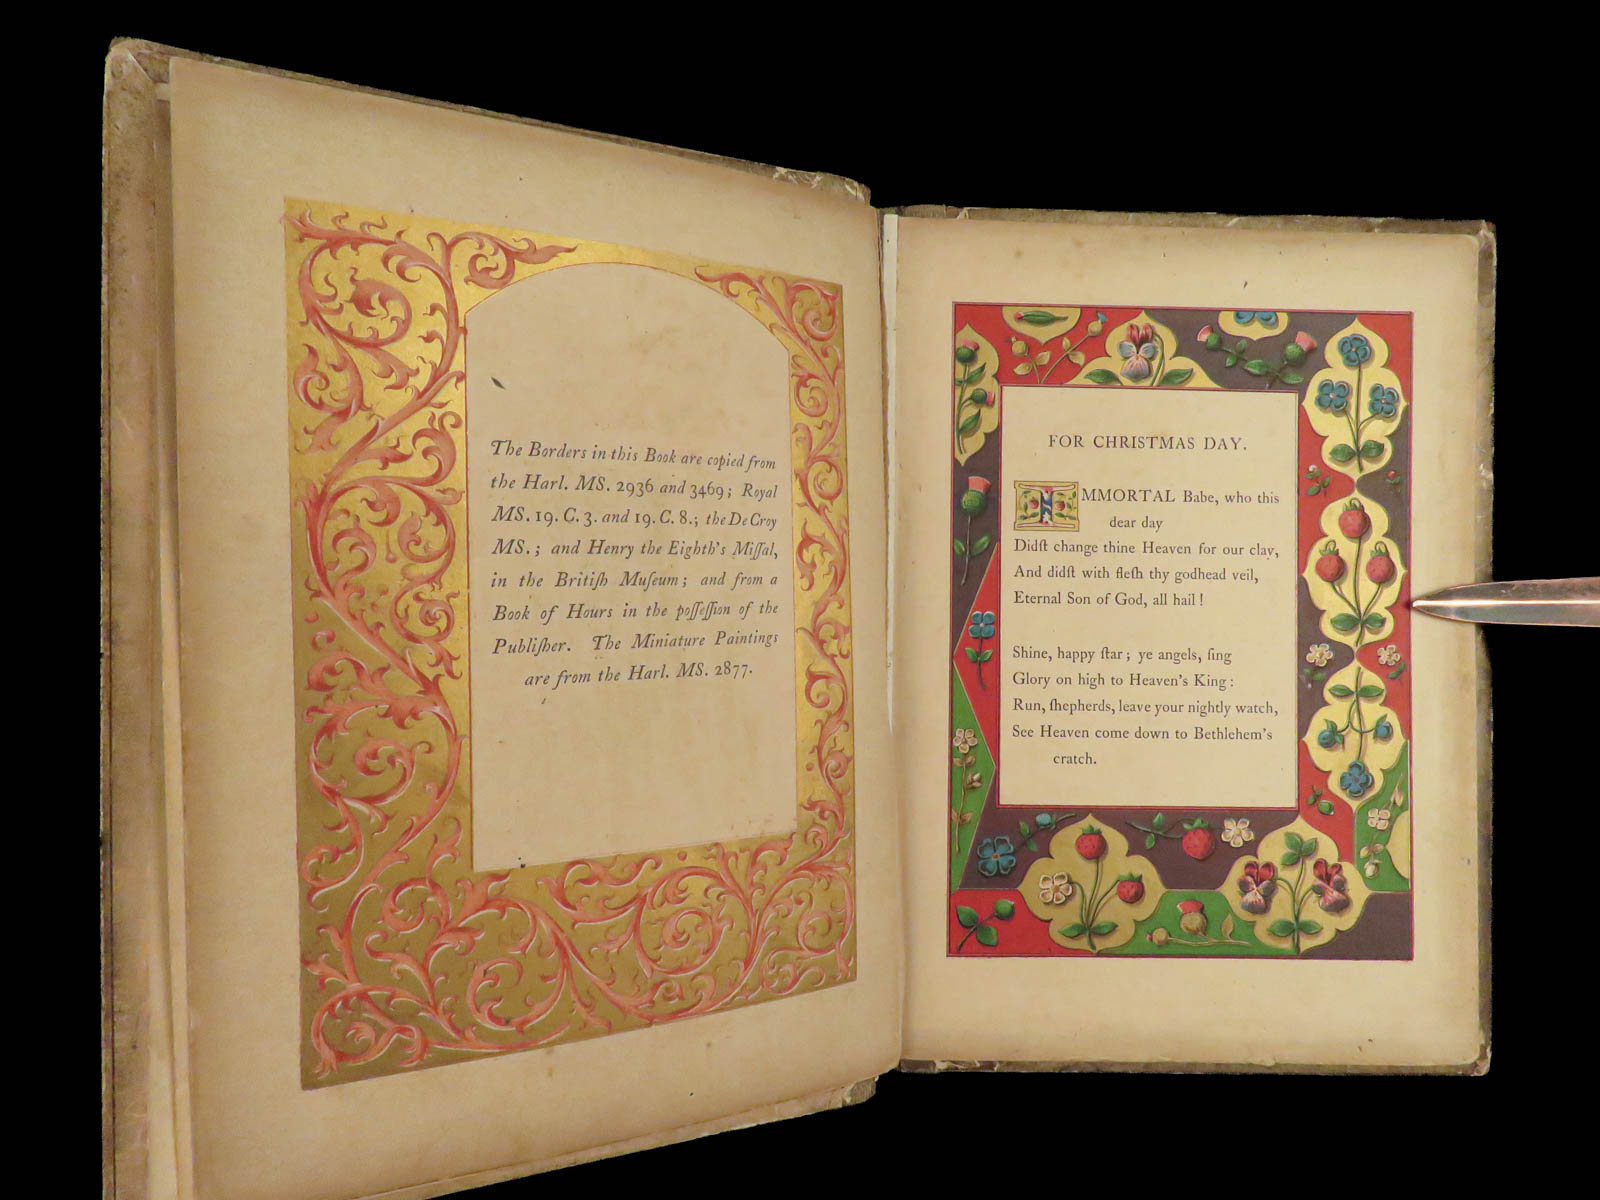 The Borders in this Book are copied from
the Harl. MS. 2936 and 3469; Royal
MS. 19. C. 3. and 19. C. 8.; the De Croy
MS.; and Henry the Eighth's Miſſal,
in the Britiſh Muſeum; and from a
Book of Hours in the poſſeſſion of the
Publiſher. The Miniature Paintings
are from the Harl. MS. 2877.
FOR CHRISTMAS DAY.
IMMORTAL Babe, who this
dear day
Didſt change thine Heaven for our clay,
And didſt with fleſh thy godhead veil,
Eternal Son of God, all hail!
Shine, happy ſtar; ye angels, ſing
Glory on high to Heaven's King:
Run, ſhepherds, leave your nightly watch,
See Heaven come down to Bethlehem's
cratch.